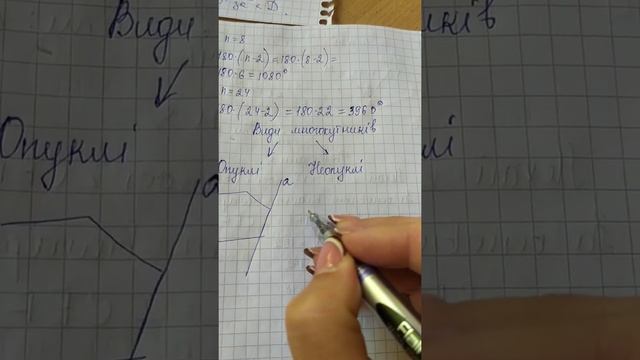 n = 8
180·(n-2) = 180·(8-2) =
180·6 = 1080°
n = 24
180·(24-2) = 180·22 = 3960°
Види многокутників
Опуклі Неопуклі
a